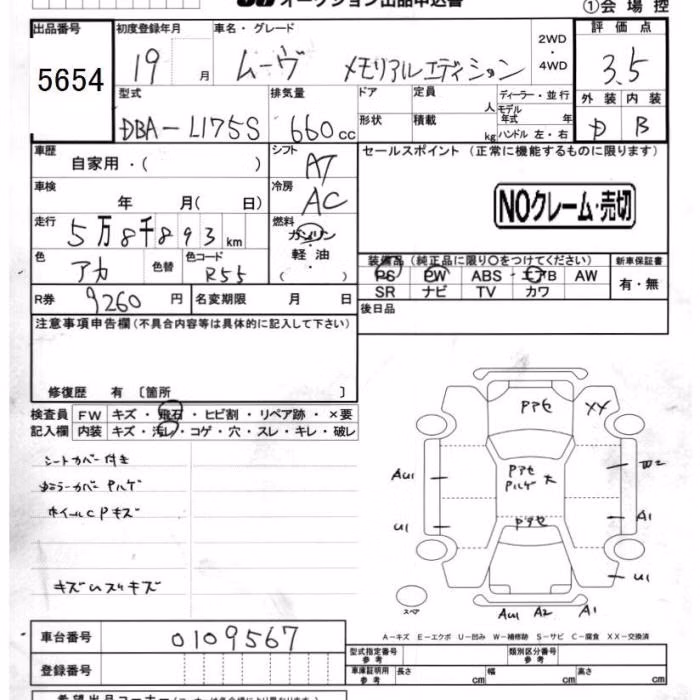 オークション出品申込書
①会場控
出品番号 5654
初度登録年月 19 月
車名・グレード ムーヴ メモリアルエディション
2WD・4WD
評価点 3.5
外装 内装 B
型式 DBA-L175S
排気量 660cc
ドア 形状
定員 人
積載 kg
ディーラー・並行
モデル年式 年
ハンドル 左・右
車歴 自家用・( )
シフト AT
セールスポイント (正常に機能するものに限ります)
車検 年 月( 日)
冷房 AC
NOクレーム・売切
走行 5万8千893km
燃料 ガソリン 軽油 ( )
色 アカ 色替 色コード R55
装備品 (純正品に限り○をつけてください)
新車保証書
PS PW ABS エアB AW
有・無
SR ナビ TV カワ
R券 9260円
名変期限 月 日
後日品
注意事項申告欄 (不具合内容等は具体的に記入して下さい)
修復歴 有 〔箇所 〕
検査員 FW キズ・飛石・ヒビ割・リペア跡・×要
記入欄 内装 キズ・汚レ・コゲ・穴・スレ・キレ・破レ
シートカバー付き
カバー
ホイールCPキズ
キズ スリキズ
アセ XX
AU1 アセ
U1 アセ A1
U1
スペア
AU1 A2 A1
A-キズ E-エクボ U-凹み W-補修跡 S-サビ C-腐食 XX-交換済
車台番号 0109567
型式指定番号 参考
類別区分番号 参考
登録番号
車庫証明用 参考 長さ cm 幅 cm 高さ cm
希望出品コーナー